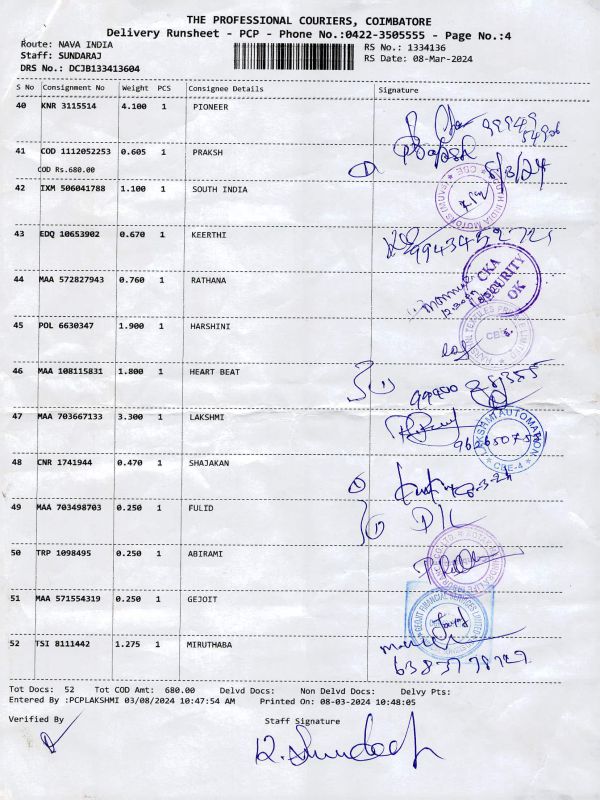 THE PROFESSIONAL COURIERS, COIMBATORE
Delivery Runsheet - PCP - Phone No.:0422-3505555 - Page No.:4
Route: NAVA INDIA
Staff: SUNDARAJ
DRS No.: DCJB133413604
RS No.: 1334136
RS Date: 08-Mar-2024
S No Consignment No Weight PCS Consignee Details Signature
40 KNR 3115514 4.100 1 PIONEER
41 COD 1112052253 0.605 1 PRAKSH
COD Rs.680.00
8/3/24
42 IXM 506041788 1.100 1 SOUTH INDIA
43 EDQ 10653902 0.670 1 KEERTHI
44 MAA 572827943 0.760 1 RATHANA
CKA
SECURITY
OK
45 POL 6630347 1.900 1 HARSHINI
46 MAA 108115831 1.800 1 HEART BEAT
47 MAA 703667133 3.300 1 LAKSHMI
LAKSHMI AUTOMATION
CBE-4
48 CNR 1741944 0.470 1 SHAJAKAN
49 MAA 703498703 0.250 1 FULID
50 TRP 1098495 0.250 1 ABIRAMI
51 MAA 571554319 0.250 1 GEJOIT
52 TSI 8111442 1.275 1 MIRUTHABA
Tot Docs: 52 Tot COD Amt: 680.00 Delvd Docs: Non Delvd Docs: Delvy Pts:
Entered By :PCPLAKSHMI 03/08/2024 10:47:54 AM Printed On: 08-03-2024 10:48:05
Verified By Staff Signature